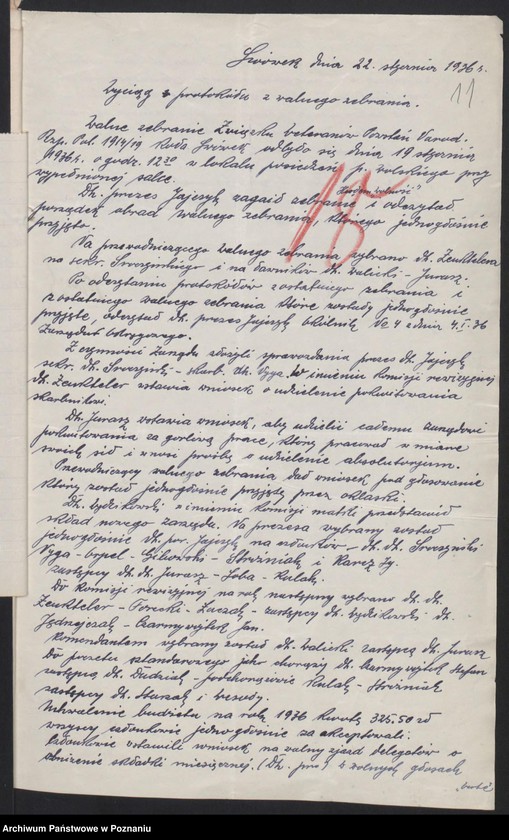 Lwówek dnia 22. stycznia 1936 r.
11
Wyciąg z protokółu z walnego zebrania.
Walne zebranie Związku Weteranów Powstań Narod.
Rzp. Pol. 1914/19 Koło Lwówek odbyło się dnia 19 stycznia
1936 r. o godz. 12 30 w lokalu posiedzeń p. Wolskiego przy
wypełnionej salce.
Dh. prezes Jajczyk zagaił zebranie i odczytał
porządek obrad walnego zebrania, którego jednogłośnie
przyjęto.
15
Na przewodniczącego walnego zebrania wybrano dh. Zenktelera
na sekr. i na ławników dh. Walicki - Jurasz.
Po odczytaniu protokółów z ostatniego zebrania i
z ostatniego walnego zebrania które zostały jednogłośnie
przyjęte, odczytał dh. prezes Jajczyk okólnik No 4 z dnia 4.I.36
Zarządu Okręgowego.
Z czynności Zarządu złożyli sprawozdania prezes dh. Jajczyk
sekr. dh. - skarb. dh. Nyga. W imieniu komisji rewizyjnej
dh. Zenkteler stawia wniosek o udzielenie pokwitowania
skarbnikowi.
Dh. Jurasz stawia wniosek, aby udzielić całemu zarządowi
pokwitowania za gorliwą pracę, który pracował w miarę
swoich sił i wnosi prośbę o udzielenie absolutorjum.
Przewodniczący walnego zebrania dał wniosek pod głosowanie
który został jednogłośnie przyjęty przez oklaski.
Dh. w imieniu komisji matki przedstawił
skład nowego zarządu. Na prezesa wybrany został
jednogłośnie dh. pr. Jajczyk na członków - dh. dh.
Nyga - - - Stróżniak i
zastępcy dh. dh. Jurasz - - Kulak.
Do komisji rewizyjnej na rok następny wybrano dh. dh.
Zenkteler - - - zastępcy dh. dh.
Jędrzejczak - Czarnywojtek Jan.
Komendantem wybrany został dh. Walicki zastępcą dh. Jurasz
Do pocztu sztandarowego jako chorąży dh. Czarnywojtek Stefan
zastępca dh. Dudziak - podchorążowie Kulak - Stróżniak
zastępcy dh. i
Uchwalenie budżetu na rok 1936 kwotę 325.50 zł
wszyscy członkowie jednogłośnie zaakceptowali.
Członkowie stawili wniosek na walny zjazd delegatów o
obniżenie składki miesięcznej. w wolnych głosach
Archiwum Państwowe w Poznaniu